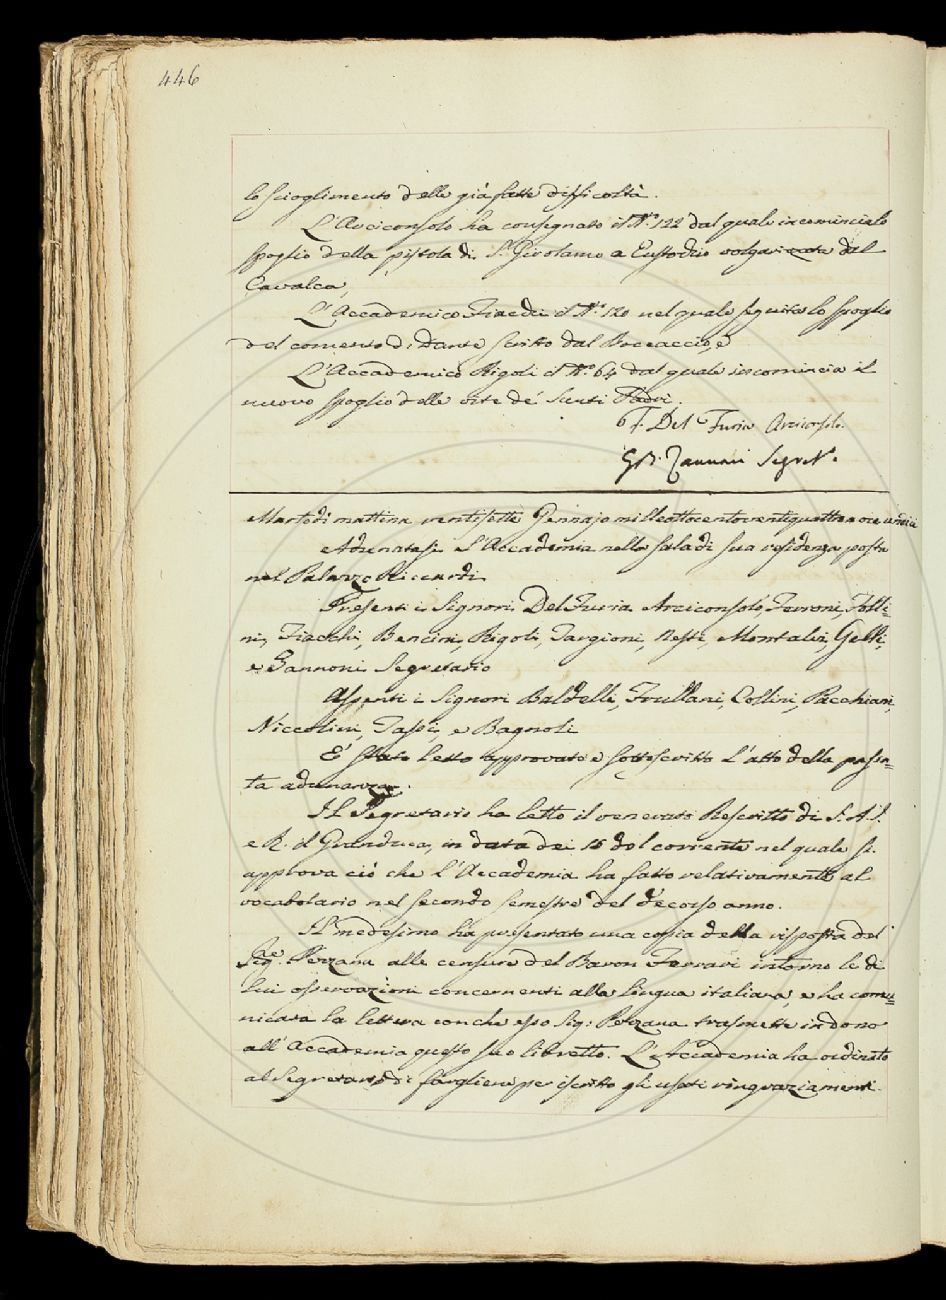 446
lo scioglimento delle già fatte difficoltà.
L'Arciconsolo ha consegnato il N.º 122 dal quale incomincia lo
spoglio della pistola di S. Girolamo a Eustochio volgarizzata dal
Cavalca,
L'Accademico Fiacchi il N.º 120 nel quale seguita lo spoglio
del comento di Dante scritto dal Boccaccio, e
L'Accademico Rigoli il N.º 64 dal quale incomincia il
nuovo spoglio delle vite de' Santi Padri.
F. Del Furia Arciconsolo.
GB. Zannoni Segret.º
Martedì mattina ventisette Gennajo milleottocentoventiquattro a ore undici
Adunatasi l'Accademia nella sala di sua residenza posta
nel Palazzo Riccardi
Presenti i Signori Del Furia Arciconsolo, Ferroni, Follì=
ni, Fiacchi, Bencini, Rigoli, Targioni, Nesti, Montalvi, Gelli,
e Zannoni Segretario
Assenti i Signori Baldelli, Frullani, Collini, Pacchiani,
Niccolini, Tassi, e Bagnoli
E' stato letto approvato e sottoscritto l'atto della passa=
ta adunanza.
Il Segretario ha letto il venerato Rescritto di S. A. I.
e R. il Granduca, in data dei 15 del corrente nel quale si
approva ciò che l'Accademia ha fatto relativamente al
vocabolario nel secondo semestre del decorso anno.
Il medesimo ha presentato una copia della risposta del
Sig.re Pezzana alle censure del Baron Ferrari intorno le di
lui osservazioni concernenti alla lingua italiana, e ha comu=
nicata la lettera con che esso Sig: Pezzana trasmette in dono
all'Accademia questo suo libretto. L'Accademia ha ordinato
al Segretario di fargliene per iscritto gli usati ringraziamenti.